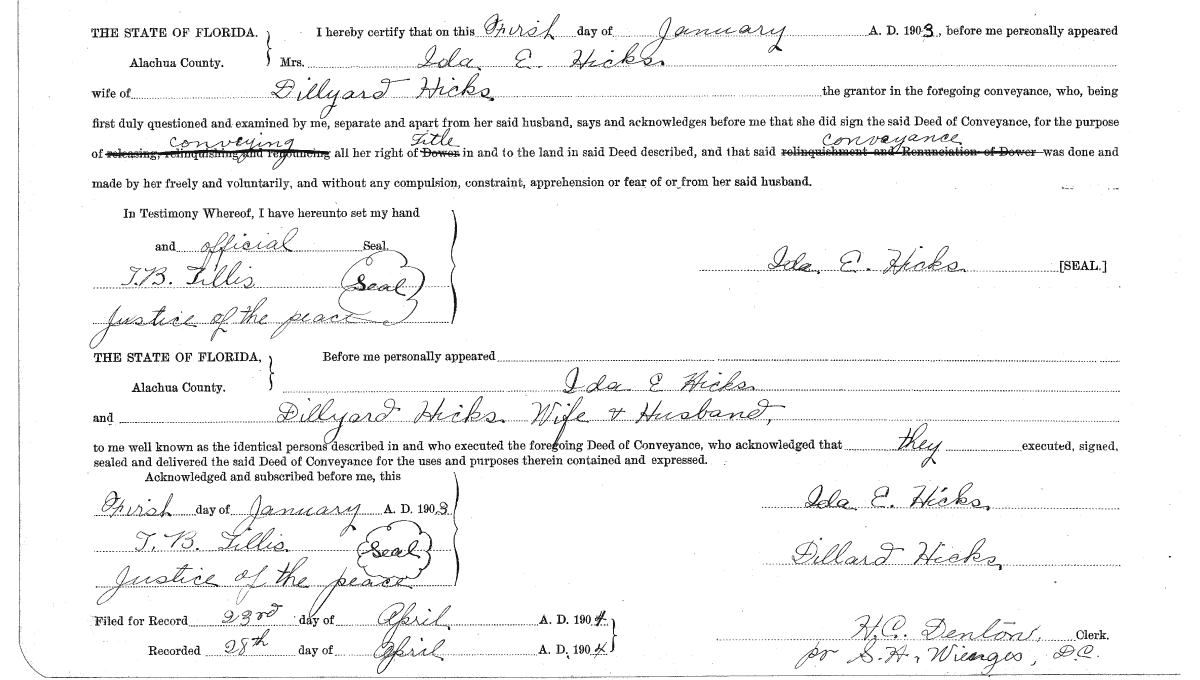 THE STATE OF FLORIDA. I hereby certify that on this First day of January A. D. 1903, before me personally appeared
Alachua County. Mrs. Ida. E. Hicks.
wife of Dillyard Hicks. the grantor in the foregoing conveyance, who, being
first duly questioned and examined by me, separate and apart from her said husband, says and acknowledges before me that she did sign the said Deed of Conveyance, for the purpose
conveying Title conveyance
of releasing, relinquishing and renouncing all her right of Dower in and to the land in said Deed described, and that said relinquishment and Renunciation of Dower was done and
made by her freely and voluntarily, and without any compulsion, constraint, apprehension or fear of or from her said husband.
In Testimony Whereof, I have hereunto set my hand
and official Seal.
T.B. Tillis Seal Ida. E. Hicks. [SEAL.]
Justice of the peace
THE STATE OF FLORIDA, Before me personally appeared
Alachua County. Ida E Hicks.
and Dillyard Hicks. Wife & Husband,
to me well known as the identical persons described in and who executed the foregoing Deed of Conveyance, who acknowledged that they executed, signed,
sealed and delivered the said Deed of Conveyance for the uses and purposes therein contained and expressed.
Acknowledged and subscribed before me, this
First day of January A. D. 1903. Ida E. Hicks,
T. B. Tillis. Seal Dillard Hicks,
Justice of the peace
Filed for Record 23rd day of April. A. D. 1904. H.C. Denton, Clerk.
Recorded 28th day of April A. D. 1904 pr S.H. Wienges, D.C.